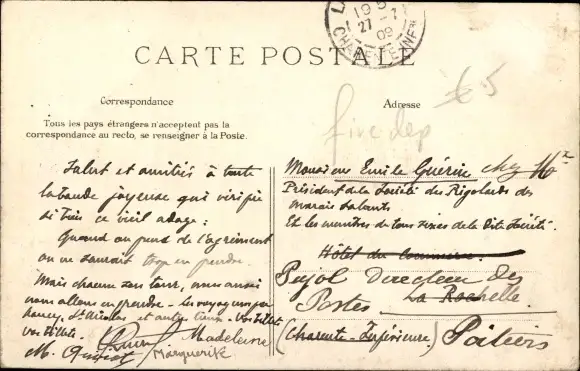 CARTE POSTALE
Correspondance
Tous les pays étrangers n'acceptent pas la
correspondance au recto, se renseigner à la Poste.
Adresse
€5
five dep
Salut et amitiés à toute
la bande joyeuse qui vérifie
si bien ce vieil adage:
Quand on prend de l'agrément
on ne saurait trop en prendre.
Mais chacun son tour, nous aussi
nous allons en prendre - Les voyages par
Nancy, St Nicolas et autres lieux - Vos billets
vos billets.
Madeleine
M. Marguerite
Monsieur Emile Guérin chez Mr
Président de la Société des Rigolards des
marais salants
Et les membres de tous sexes de la Dite Société.
Hôtel du Commerce
Pujol Directeur des
Postes La Rochelle
(Charente-Inférieure) Poitiers
27
09